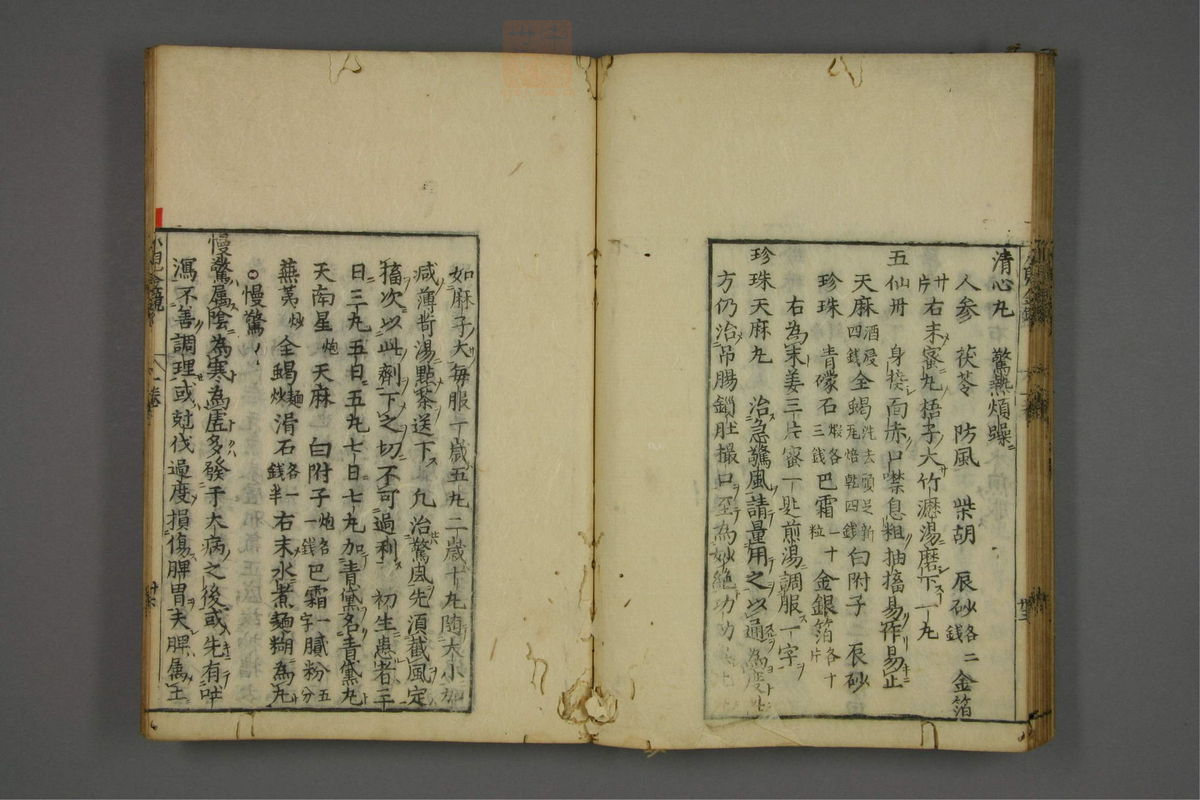 清心丸 驚熱煩躁ニ
人参 茯苓 防風 柴胡 辰砂各二銭 金箔
廿片 右末蜜丸梧子大竹瀝湯磨下一丸
五仙丹 身挼面赤口噤息粗抽搐易作易止
天麻四銭酒浸 全蝎洗去頭足新瓦焙乾四銭 白附子二 辰砂
珍珠 青礞石煅各三銭 巴霜一十粒 金銀箔各十片
右為末姜三片蜜一匙煎湯調服一字
珍珠天麻丸 治急驚風請量用之以通為度
方仍治吊腸鎖肚撮口至為妙絶
如麻子大毎服一歳五丸二歳十丸随大小加
減薄荷湯點茶送下 凡治驚風先須截風定
搐次以此劑下之切不可過利 初生患者三
日三丸五日五丸七日七丸加青黛名青黛丸
天南星炮 天麻 白附子炮各一銭 巴霜一字 膩粉五分
蕪荑炒 全蝎麵炒 滑石各一銭半 右末水煮麵糊為丸
慢驚
慢驚属陰為寒為虚多發于大病之後或先有吐
瀉不善調理或尅伐過度損傷脾胃夫脾属土